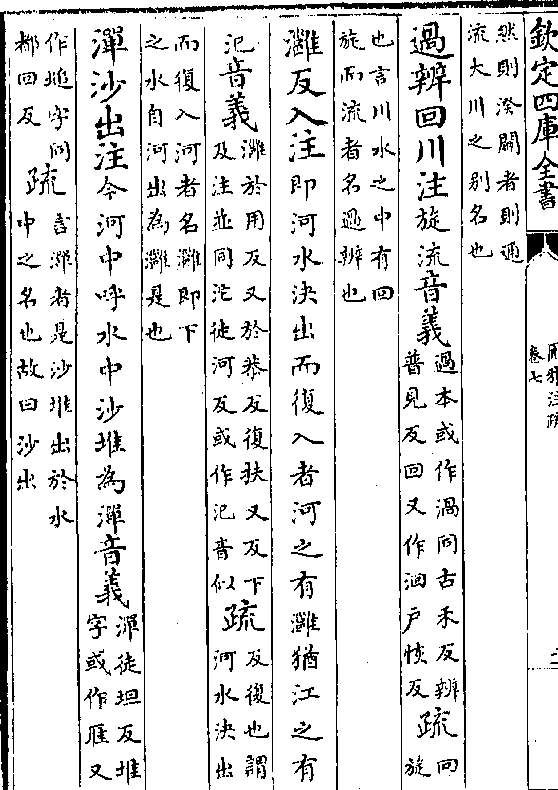 欽定四庫全書
爾雅注疏
卷七
然則湀闢者則通
流大川之別名也
過辨回川注旋流音義過本或作渦同古禾反辨
普見反回又作洄户恢反疏回
旋
也言川水之中有回
旋而流者名過辨也
灉反入注即河水決出而復入者河之有灉猶江之有
汜音義灉於用反又於恭反復扶又反下
及注並同沱徒河反或作汜音似疏反復也謂
河水決出
而復入河者名灉即下
之水自河出為灉是也
潬沙出注今河中呼水中沙堆為潬音義潬徒坦反堆
字或作雁又
作塠字同
都回反疏言潬者是沙堆出於水
中之名也故曰沙出